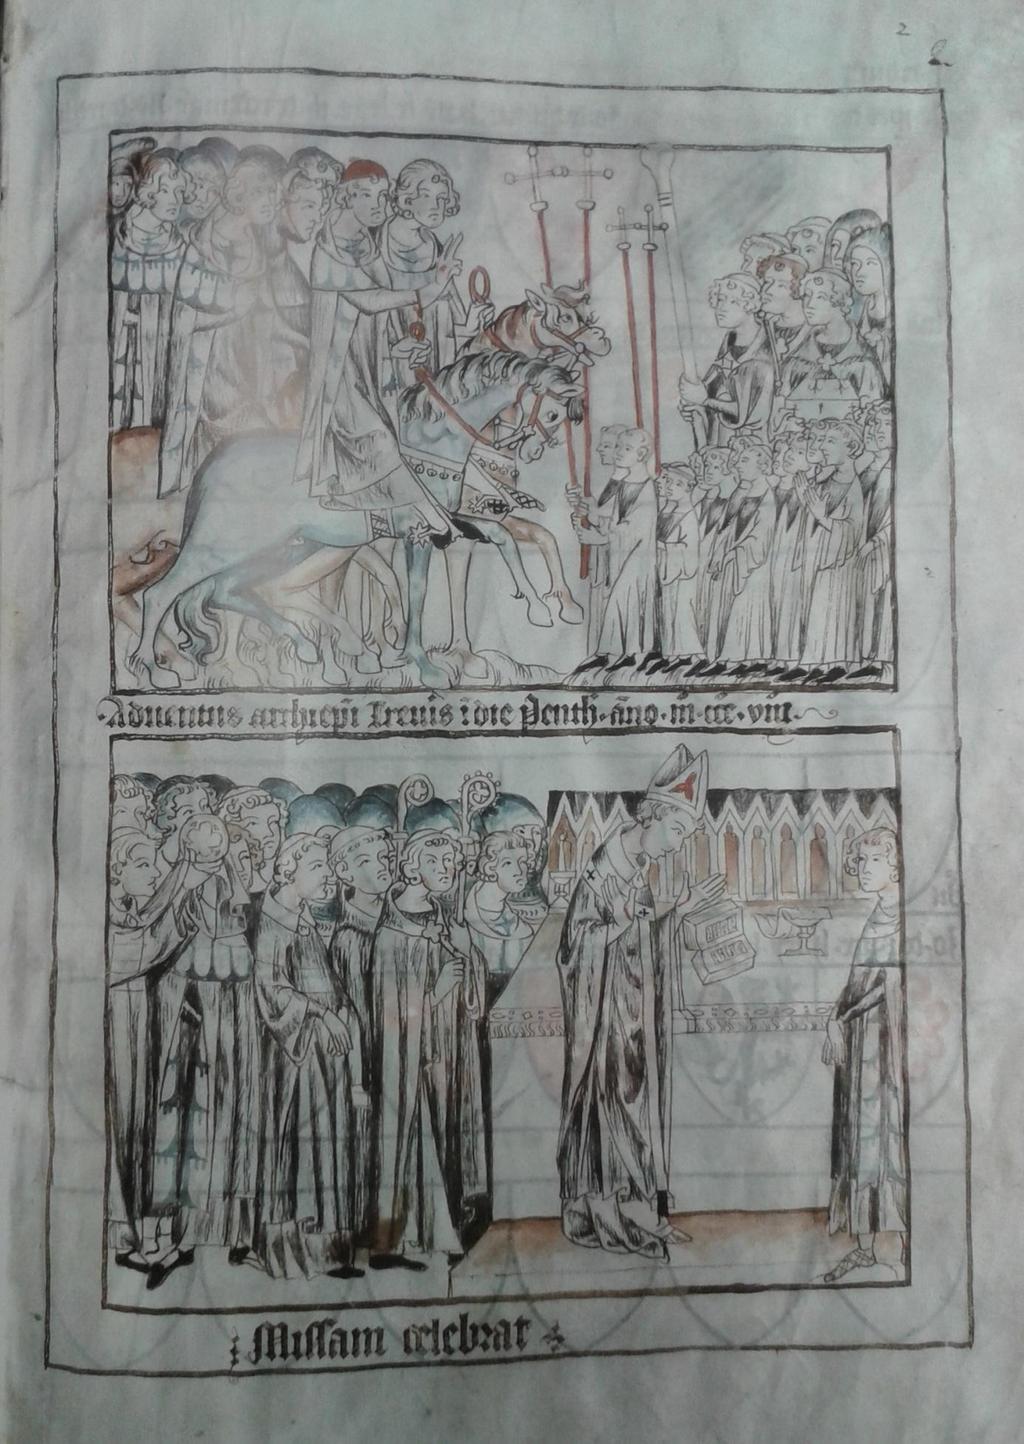 2
2
Adventus archiepi Trevis ī die Penth· āno·m·ccc·viii·
Missam celebrat